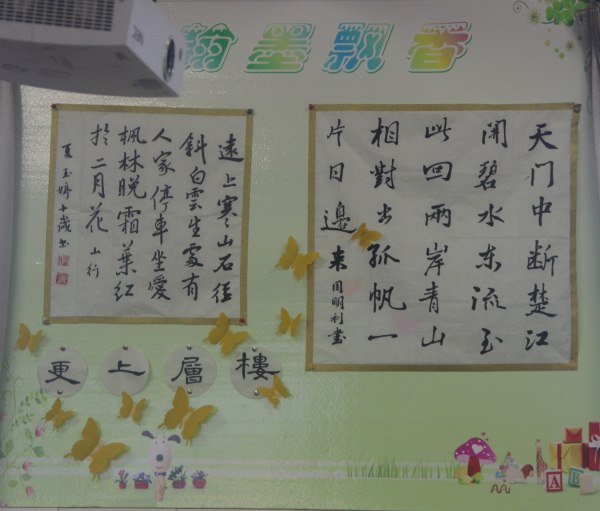 翰墨飘香
天门中断楚江
開碧水东流至
此回兩岸青山
相對出孤帆一
片日邊来 周明利書
遠上寒山石径
斜白雲生處有
人家停車坐愛
枫林晚霜葉红
於二月花 山行
夏玉婷十歲书
更上層樓
A B